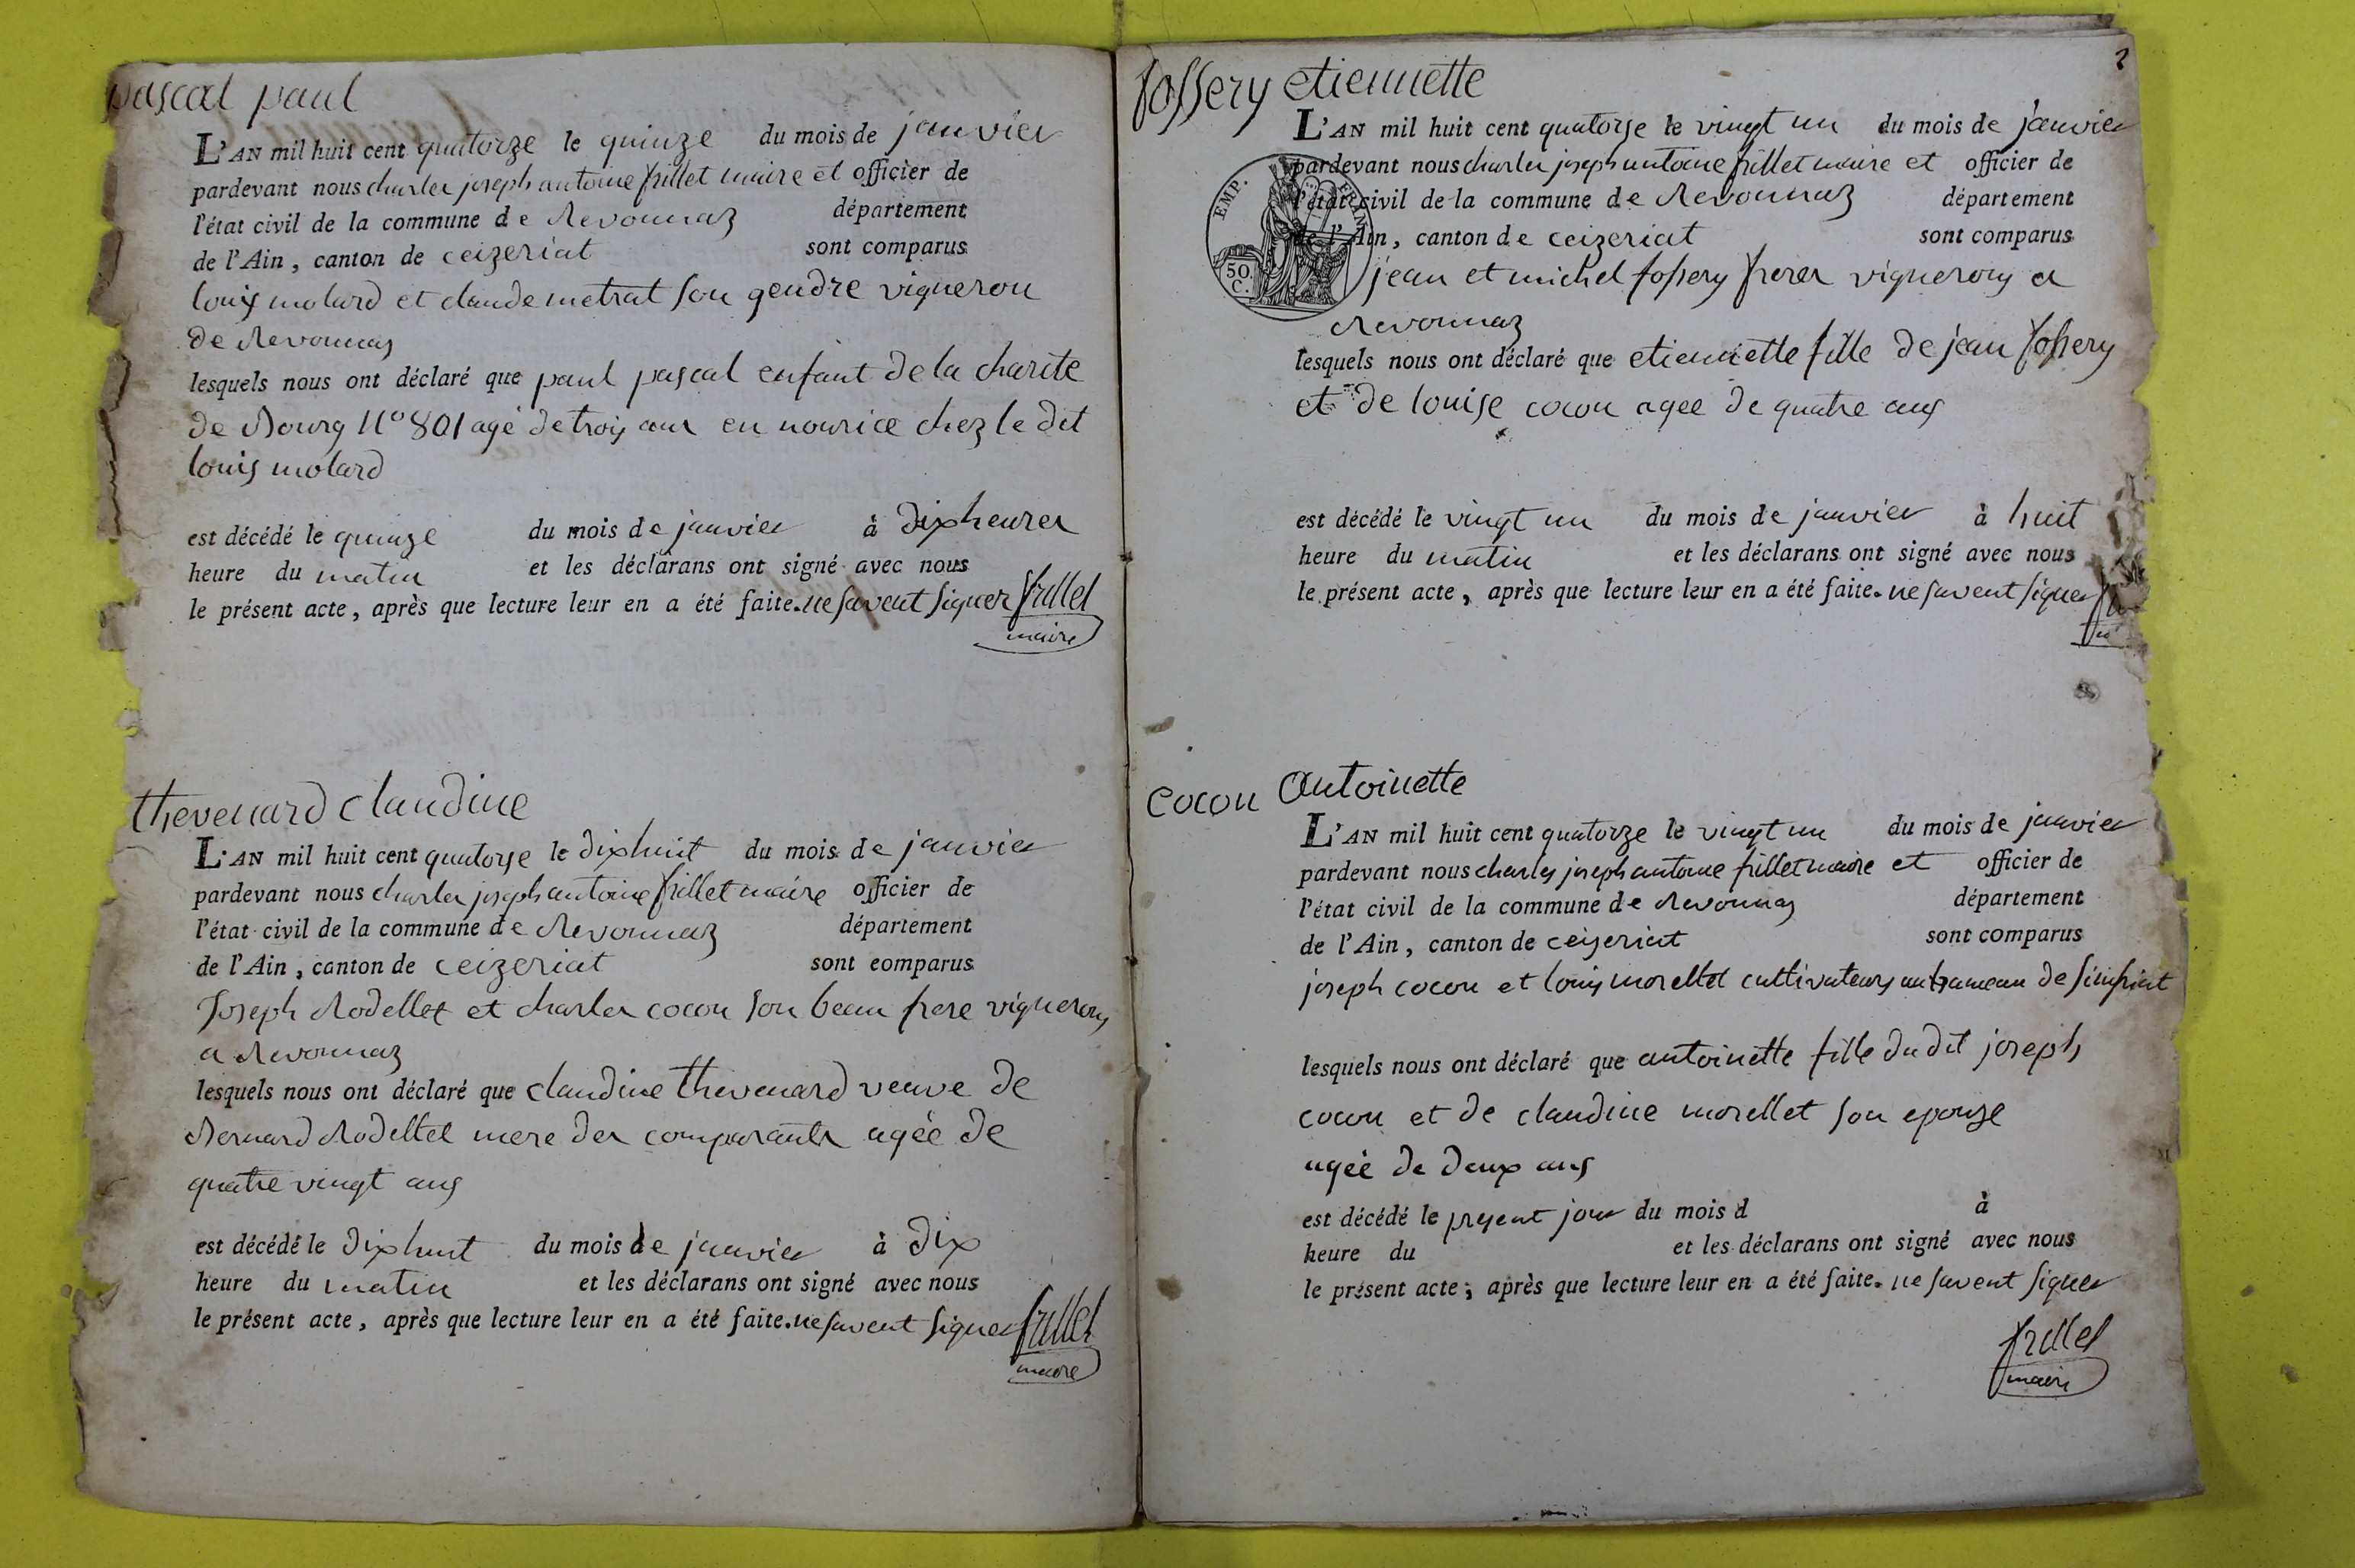 pascal paul
L'AN mil huit cent quatorze le quinze du mois de janvier
pardevant nous charles joseph antoine frillet maire et officier de
l'état civil de la commune de Revonnaz département
de l'Ain, canton de ceizeriat sont comparus
louis molard et claude metrat son gendre vigneron
de Revonnas
lesquels nous ont déclaré que paul pascal enfant de la charite
de Bourg N° 801 agé de trois ans en nourice chez le dit
louis molard
est décédé le quinze du mois de janvier à dix heures
heure du matin et les déclarans ont signé avec nous
le présent acte, après que lecture leur en a été faite. ne savent signer frillet
maire
thevenard claudine
L'AN mil huit cent quatorze le dixhuit du mois de janvier
pardevant nous charles joseph antoine frillet maire officier de
l'état civil de la commune de Revonnaz département
de l'Ain, canton de ceizeriat sont comparus
Joseph Rodellet et charles cocon son beau frere vignerons
a Revonnaz
lesquels nous ont déclaré que claudine thevenard veuve de
Bernard Rodellet mere des comparants agée de
quatre vingt ans
est décédé le dixhuit du mois de janvier à dix
heure du matin et les déclarans ont signé avec nous
le présent acte, après que lecture leur en a été faite. ne savent signer frillet
maire
2
fossery etiennette
L'AN mil huit cent quatorze le vingt un du mois de janvier
pardevant nous charles joseph antoine frillet maire et officier de
l'état civil de la commune de Revonnaz département
de l'Ain, canton de ceizeriat sont comparus
EMP.
50.
C.
jean et michel fossery freres vignerons a
Revonnaz
lesquels nous ont déclaré que etiennette fille de jean fossery
et de louise cocon agee de quatre ans
est décédé le vingt un du mois de janvier à huit
heure du matin et les déclarans ont signé avec nous
le présent acte, après que lecture leur en a été faite. ne savent signer
cocon antoinette
L'AN mil huit cent quatorze le vingt un du mois de janvier
pardevant nous charles joseph antoine frillet maire et officier de
l'état civil de la commune de Revonnas département
de l'Ain, canton de ceizeriat sont comparus
joseph cocon et louis morellet cultivateurs au hameau de
lesquels nous ont déclaré que antoinette fille du dit joseph
cocon et de claudine morellet son epouze
agée de deux ans
est décédé le present jour du mois d à
heure du et les déclarans ont signé avec nous
le présent acte; après que lecture leur en a été faite. ne savent signer
frillet
maire